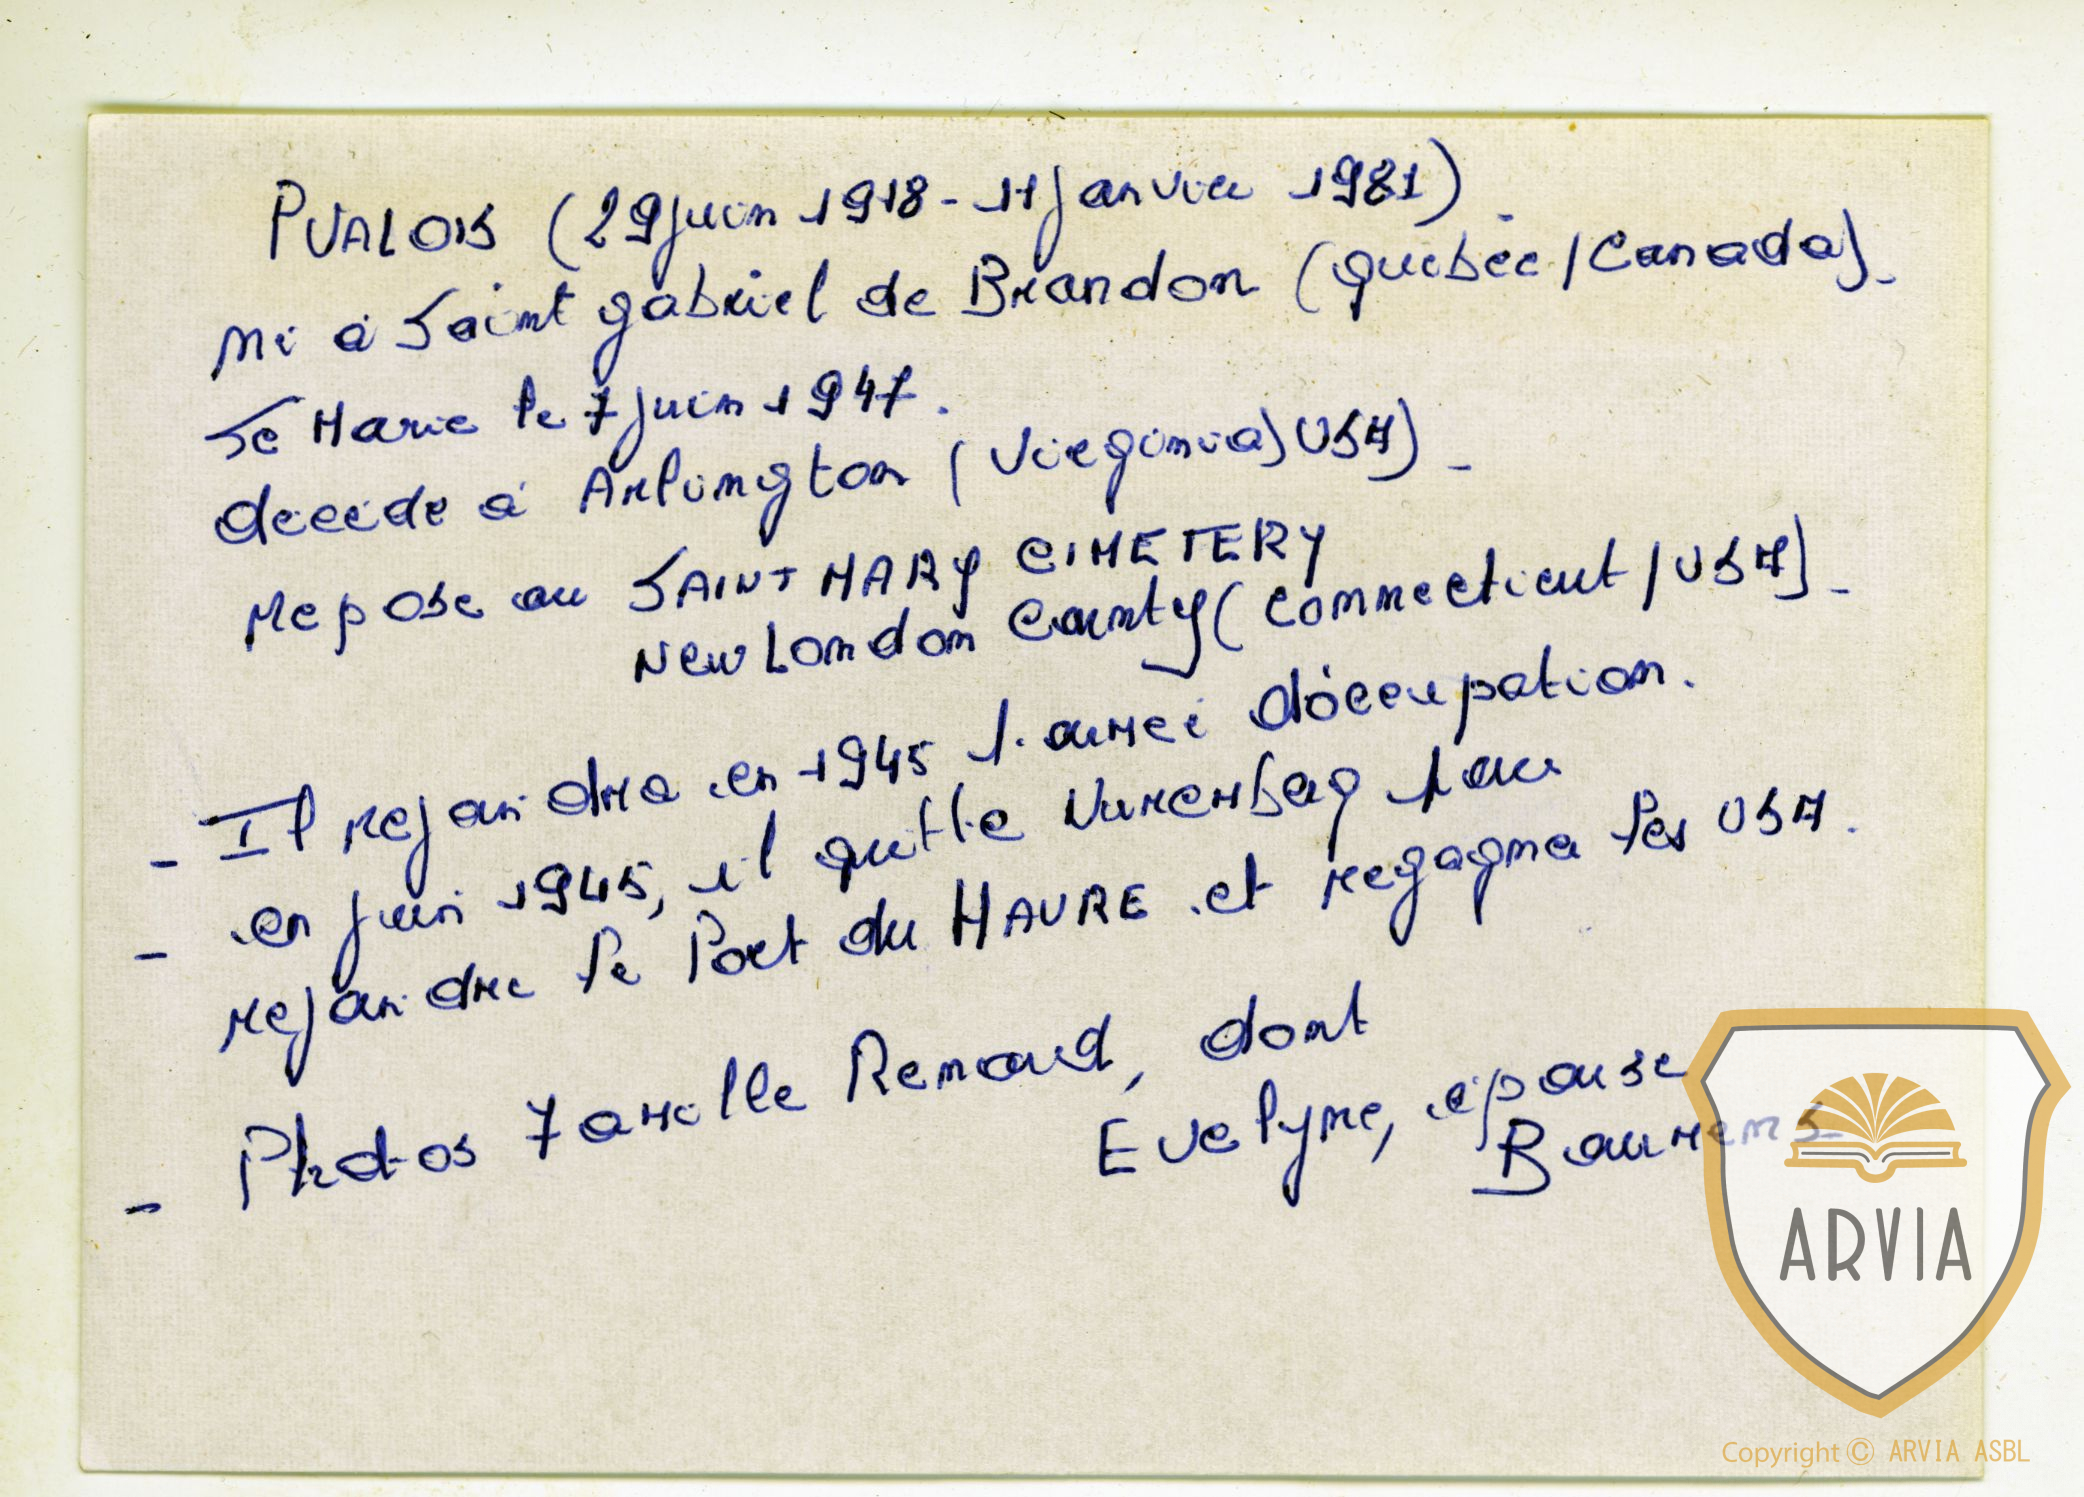 PVALOIS (29 juin 1918 - 11 janvier 1981).
Né à Saint gabriel de Brandon (québec / Canada).
Se Marie le 7 juin 1947.
décédé à Arlington (Virginia) USA) -
repose au SAINT MARY CIMETERY
New London County (Connecticut / USA) -
- Il rejoindra en 1945 l'armée d'occupation.
- en juin 1945, il quitte Nuremberg pour
rejoindre le Port du HAVRE et regagne les USA.
- Photos famille Renaud, dont
Evelyne, épouse
Bourrens
ARVIA
Copyright © ARVIA ASBL